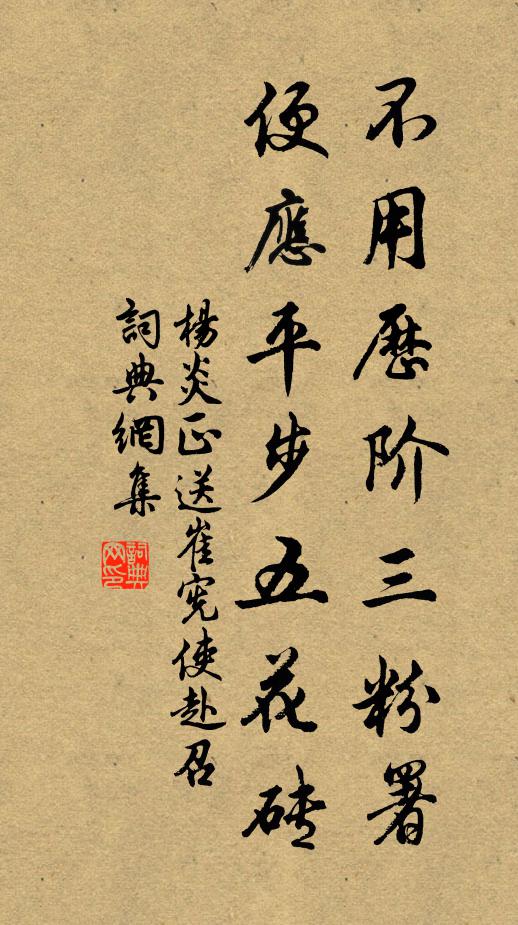 不用歷阶三粉署
便應平步五花砖
楊炎正送崔憲使赴召
詞典網集
詞典网印